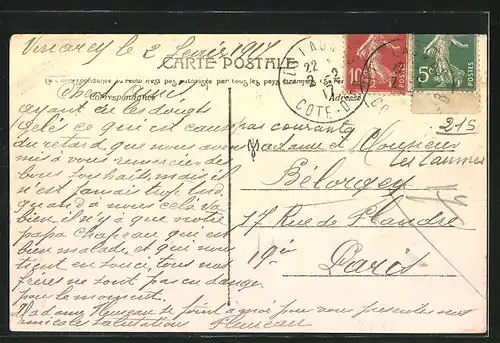 Venarey le 2 Février 1917
CARTE POSTALE
La correspondance au recto n'est pas autorisée par tous les pays étrangers
Correspondance
Adresse
22
2 - 2
17
COTE-D'OR
10c
POSTES
5c
POSTES
215
Chers Amis
ayant eu les doigts
Gelés ce qui en est cause pas courante
du retard que nous avons
mis à vous remercier des
bons souhaits, mais il
n'est jamais trop tard,
quand à nous cela va
bien, il n'y à que notre
papa Chapeau qui est
bien malade, et qui nous
tient en souci, tous nos
frères ne sont pas en danger
pour le moment.
Madame se joint à moi pour vous présenter nos
amicales salutations
Madame et Monsieur
Bélorgey
77 Rue de Flandre
19e
Paris